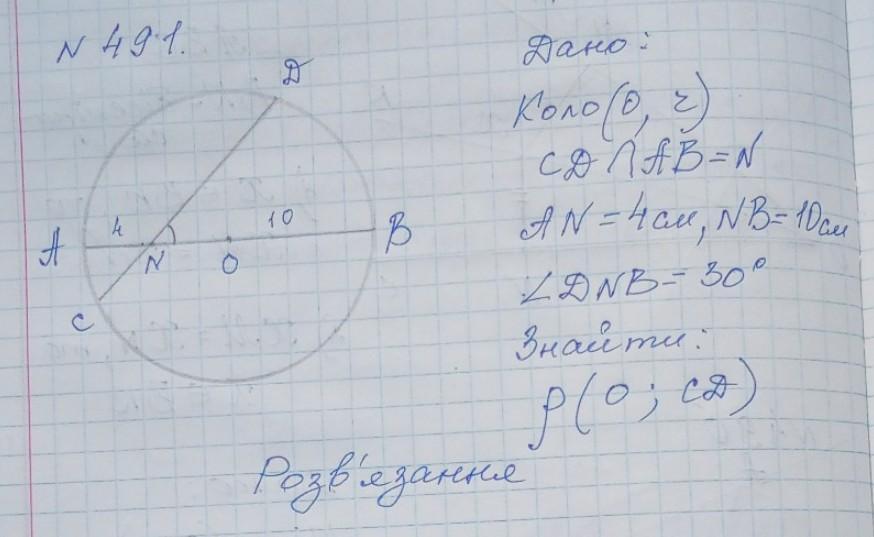 N 491.
D
4
10
A
N
O
B
C
Дано:
Коло(О, r)
CD∩AB=N
AN=4см, NB=10см
∠DNB=30°
Знайти:
ρ(О; CD)
Розв'язання